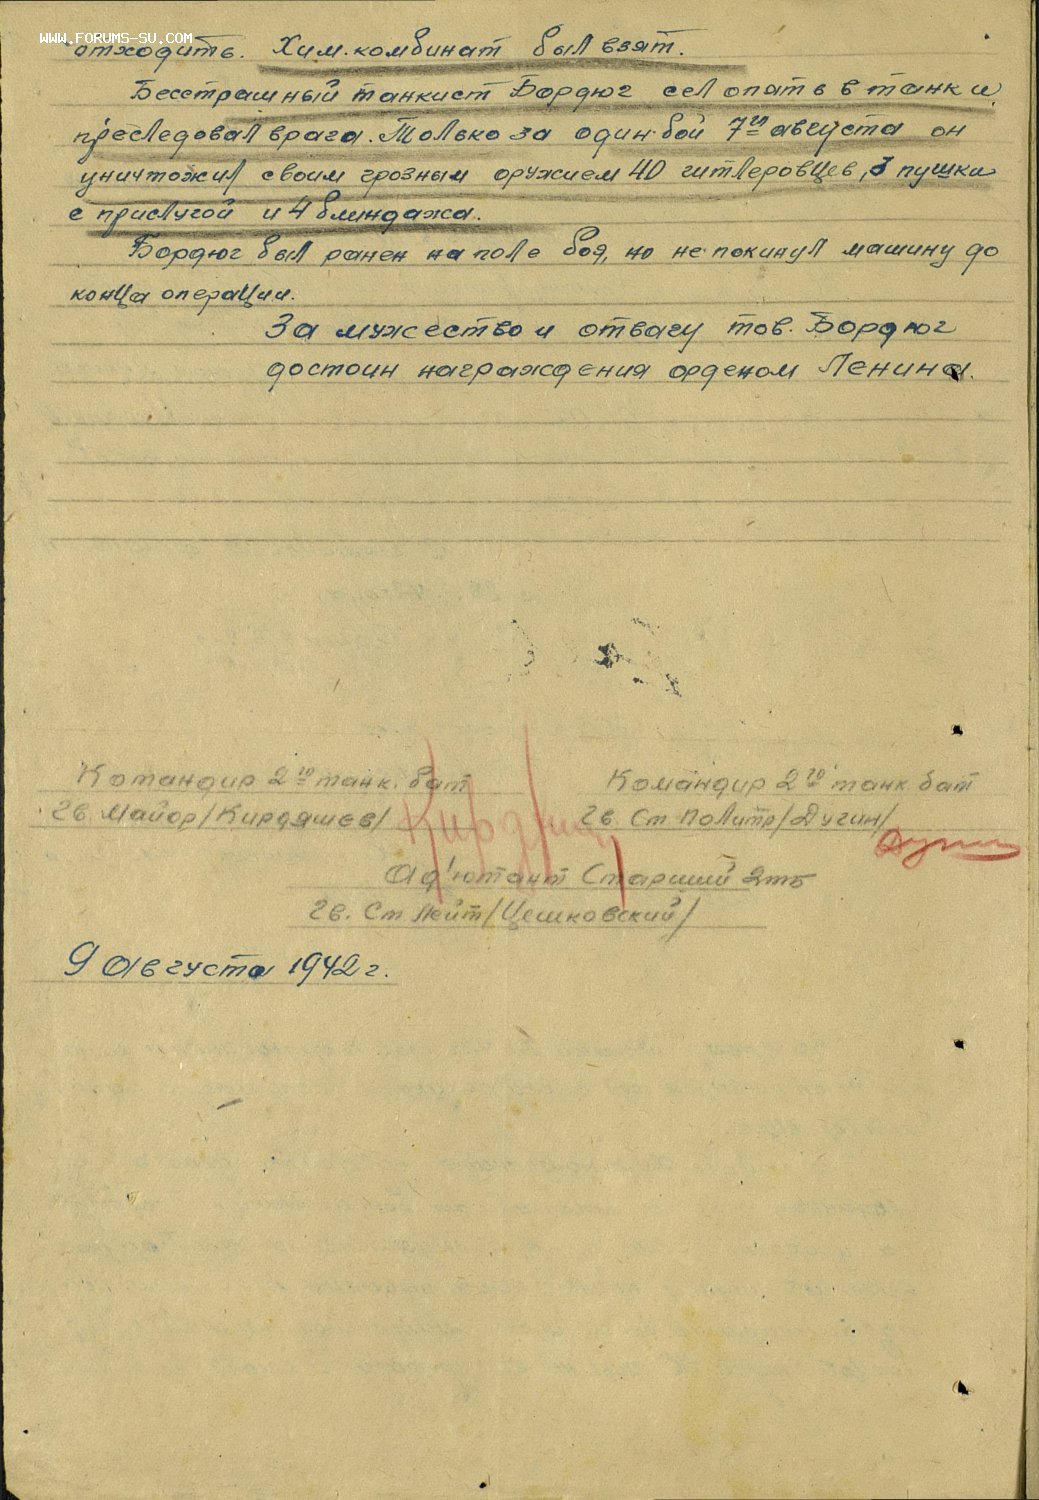 WWW.FORUMS-SU.COM
отходить. Хим. комбинат был взят.
Бесстрашный танкист Бордюг сел опять в танк и
преследовал врага. Только за один бой 7го августа он
уничтожил своим грозным оружием 40 гитлеровцев, 3 пушки
с прислугой и 4 блиндажа.
Бордюг был ранен на поле боя, но не покинул машину до
конца операции.
За мужество и отвагу тов. Бордюг
достоин награждения орденом Ленина.
Командир 2го танк. бат
Гв. Майор /Кирдяшев/
Командир 2го танк. бат
Гв. Ст Политр /Дугин/
Ад'ютант Старший 2тб
Гв. Ст Лейт /Цешковский/
9 августа 1942 г.